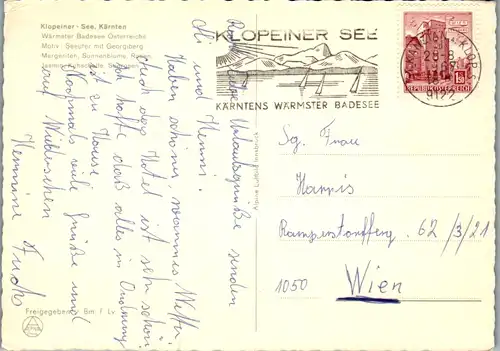 Klopeiner - See, Kärnten
Wärmster Badesee Österreichs
Motiv: Seeufer mit Georgsberg
Margeriten, Sonnenblume,
KLOPEINER SEE
KÄRNTENS WÄRMSTER BADESEE
REPUBLIK ÖSTERREICH
9122
Urlaubsgrüße senden
und Henni!
Haben schönes, warmes Wetter
auch das Hotel ist sehr schön.
Ich hoffe daß alles in Ordnung
ist zu Hause
Nochmals viele Grüße und
auf Wiedersehen
Hermine Fuchs
Alpine Luftbild Innsbruck
Sg. Frau
Harris
62/3/21
1050 Wien
Freigegeben Bm f Lv